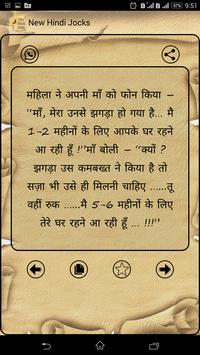 9:51
New Hindi Jocks
महिला ने अपनी माँ को फोन किया –
“माँ, मेरा उनसे झगड़ा हो गया है... मै
1-2 महीनों के लिए आपके घर रहने
आ रही हूँ !”माँ बोली – “क्यों ?
झगड़ा उस कमबख्त ने किया है तो
सज़ा भी उसे ही मिलनी चाहिए ......तू
वहीं रुक.....मै 5-6 महीनों के लिए
तेरे घर रहने आ रही हूँ ... !!!”